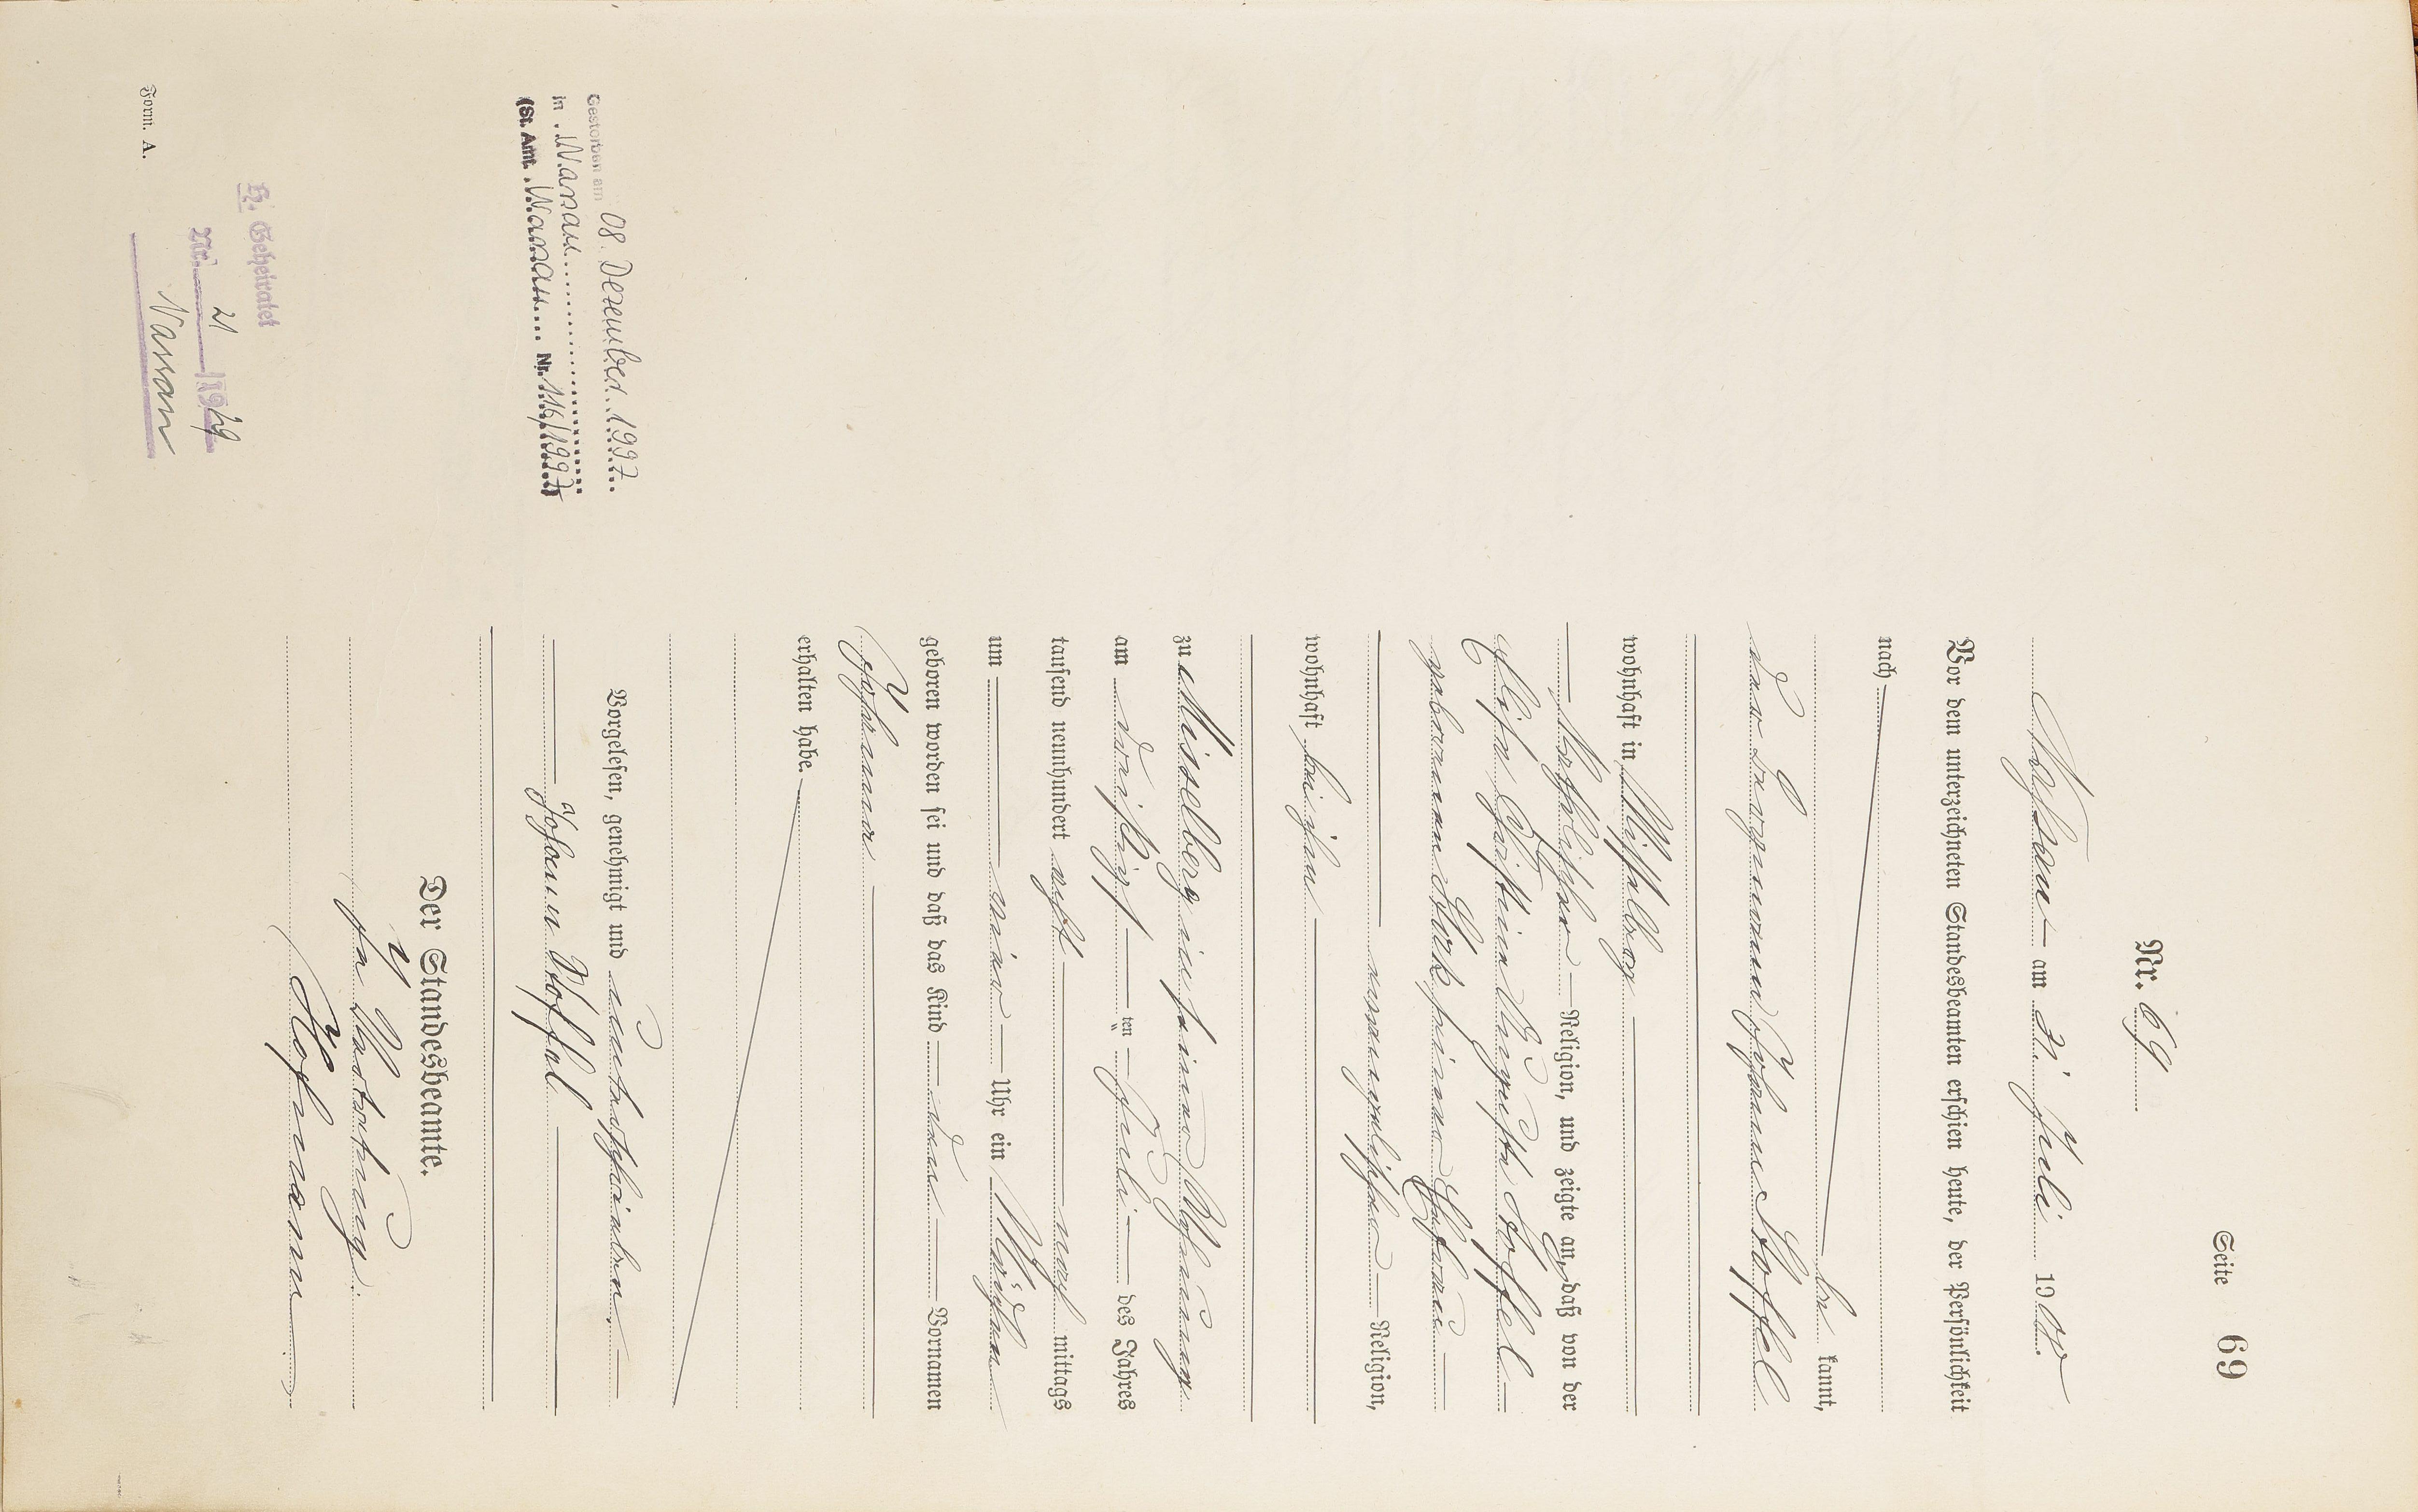 Seite 69
Nr. 69
Nassau am 31. Juli 1908.
Vor dem unterzeichneten Standesbeamten erschien heute, der Persönlichkeit
nach
be kannt,
der Bergmann Johann Stoffel
wohnhaft in Misselberg
katholischer Religion, und zeigte an, daß von der
Elise Christine Auguste Stoffel
geborenen Stork seiner Ehefrau
evangelischer Religion,
wohnhaft bei ihm
zu Misselberg in seiner Wohnung
am dreißigsten Juli des Jahres
tausend neunhundert acht nach mittags
um vier Uhr ein Mädchen
geboren worden sei und daß das Kind den Vornamen
Johanna
erhalten habe.
Vorgelesen, genehmigt und unterschrieben.
Johann Stoffel
Der Standesbeamte.
In Vertretung.
Hofmann
Gestorben am 08. Dezember 1997
in Nassau
(St. Amt. Nassau Nr. 116/1997)
Geheiratet
Nr. 1929
Nassau
Form. A.